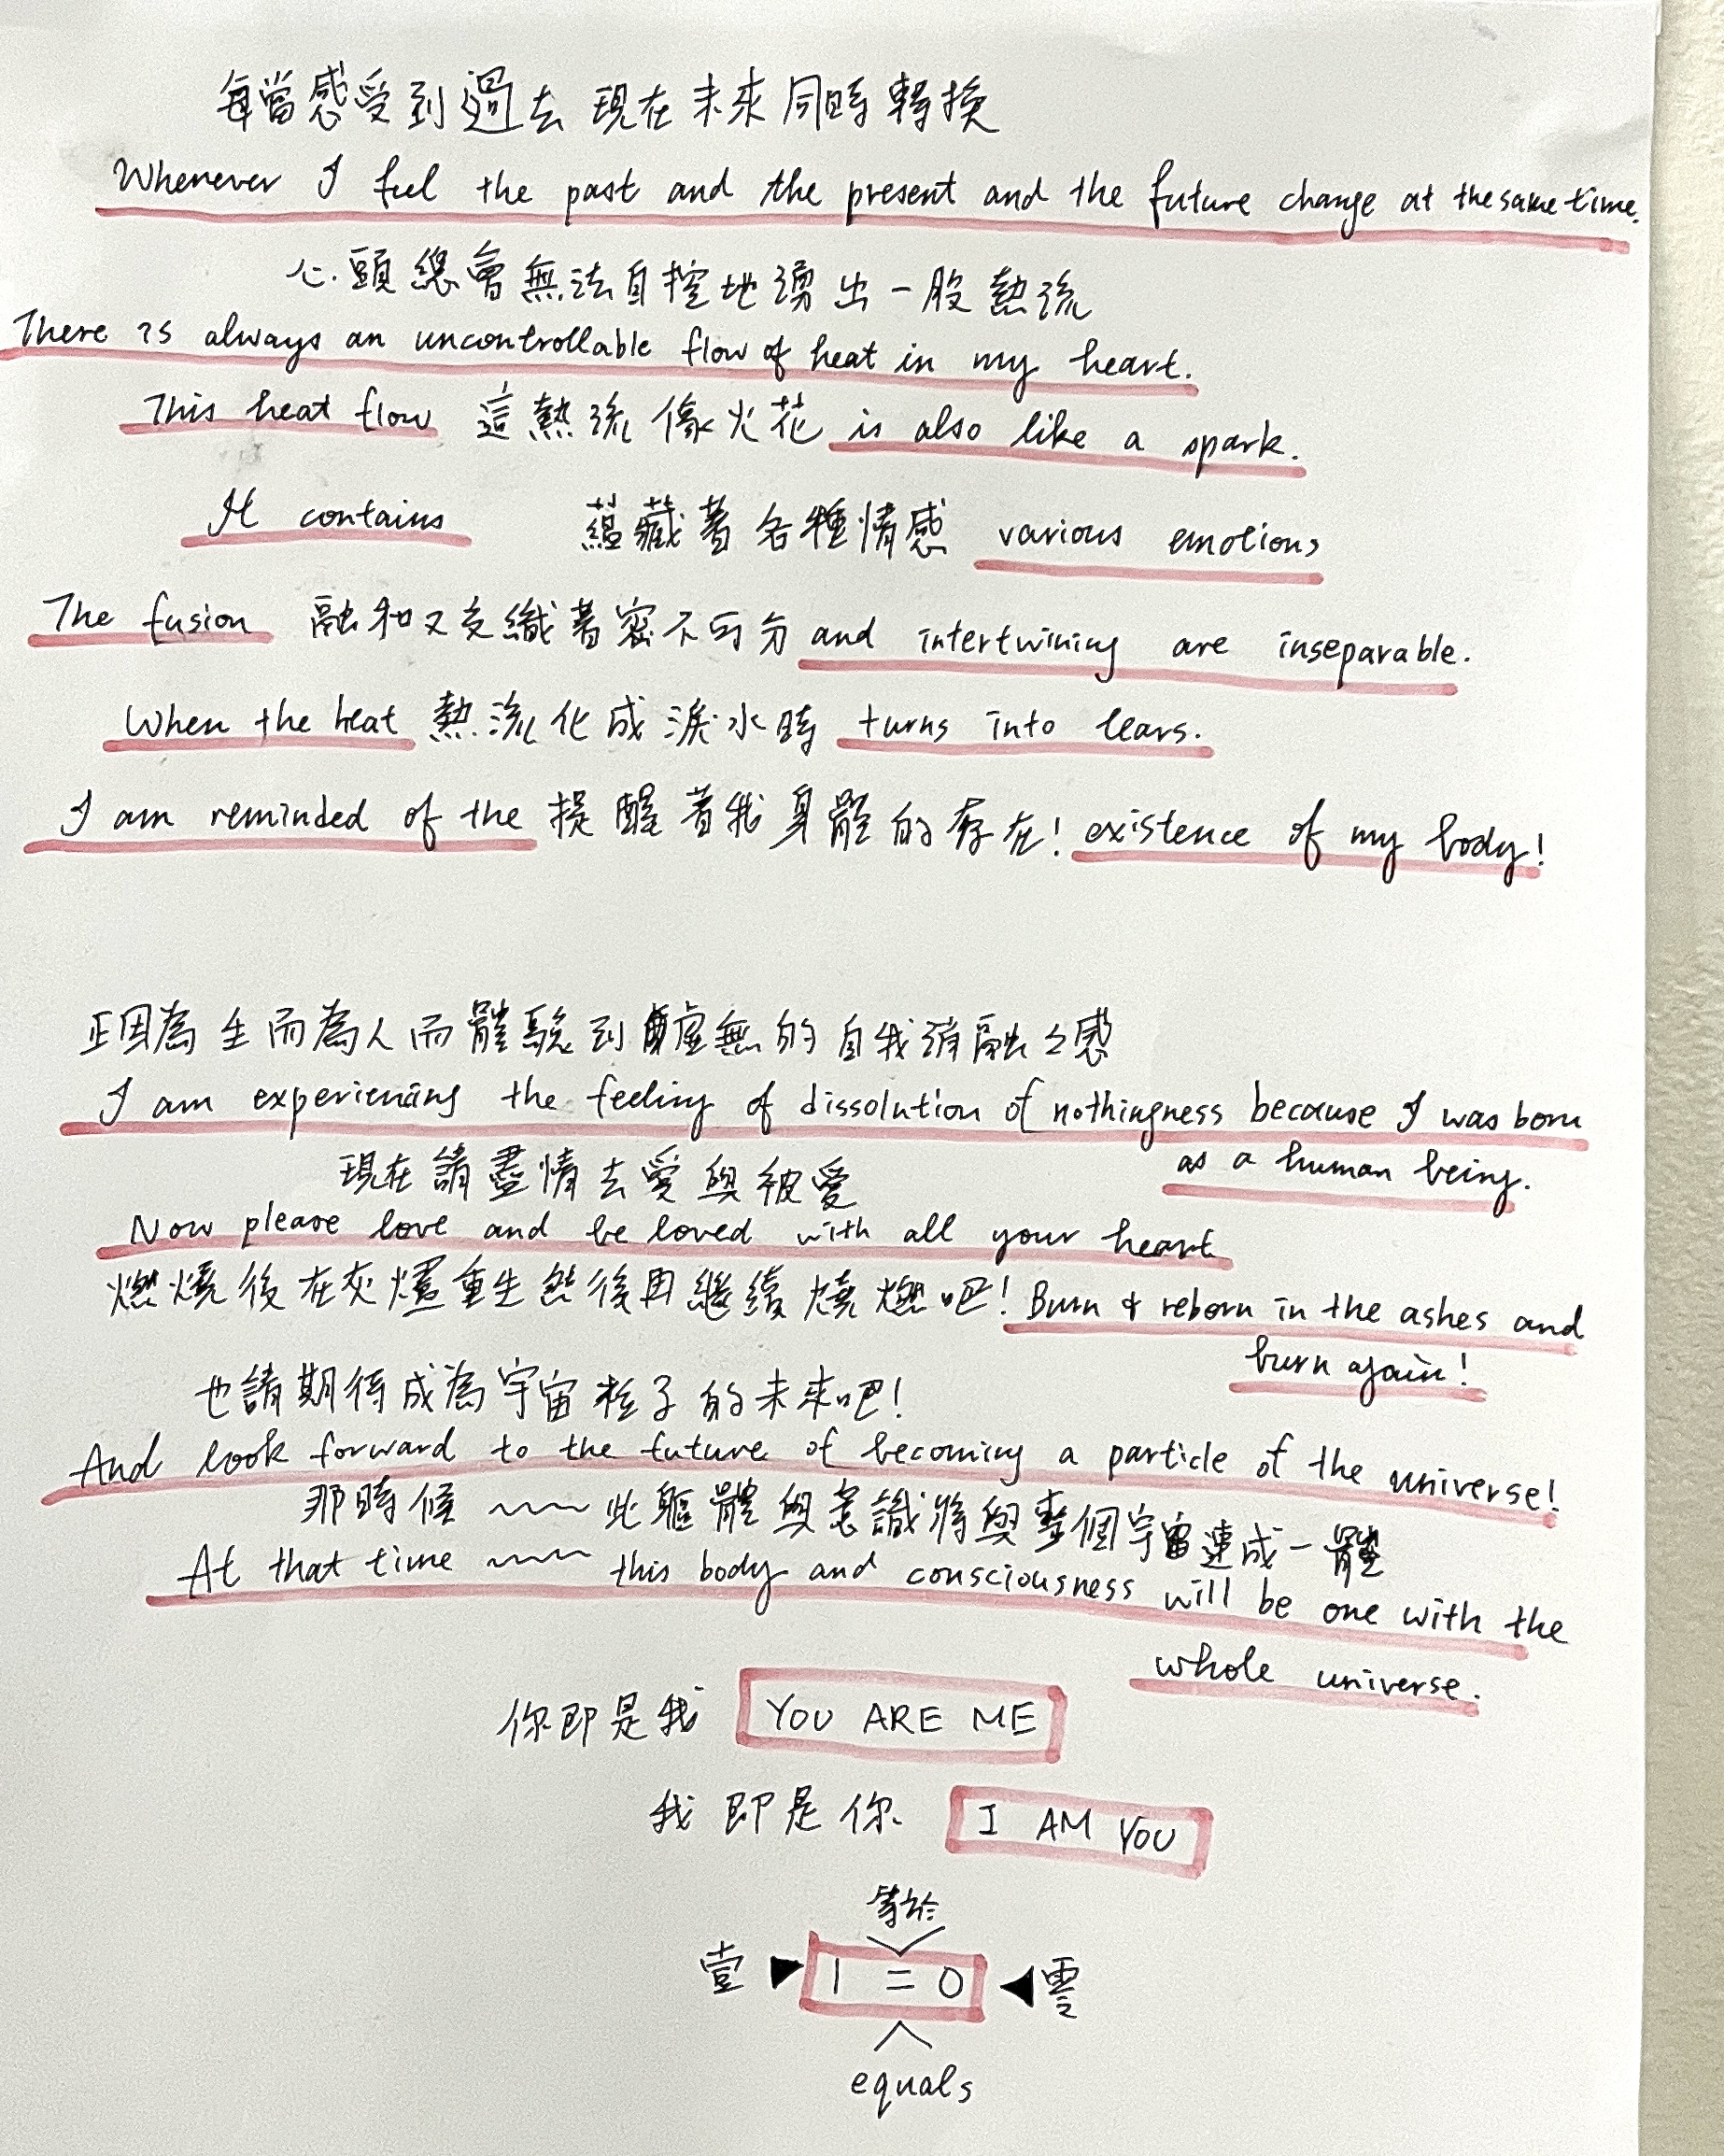 每當感受到過去現在未來同時轉換
Whenever I feel the past and the present and the future change at the same time.
心頭總會無法自控地湧出一股熱流
There is always an uncontrollable flow of heat in my heart.
This heat flow 這熱流像火花 is also like a spark.
It contains 蘊藏著各種情感 various emotions
The fusion 融和又交織著密不可分 and intertwining are inseparable.
When the heat 熱流化成淚水時 turns into tears.
I am reminded of the 提醒着我身體的存在! existence of my body!
正因為生而為人而體驗到虛無的自我消融之感
I am experiencing the feeling of dissolution of nothingness because I was born
as a human being.
現在請盡情去愛與被愛
Now please love and be loved with all your heart
燃燒後在灰燼重生然後再繼續燒燃吧! Burn & reborn in the ashes and
burn again!
也請期待成為宇宙粒子的未來吧!
And look forward to the future of becoming a particle of the universe!
那時候 ~~~ 此軀體與意識將與整個宇宙連成一體
At that time ~~~ this body and consciousness will be one with the
whole universe.
你即是我 YOU ARE ME
我即是你 I AM YOU
等於
壹 ▶ 1 = 0 ◀ 零
equals